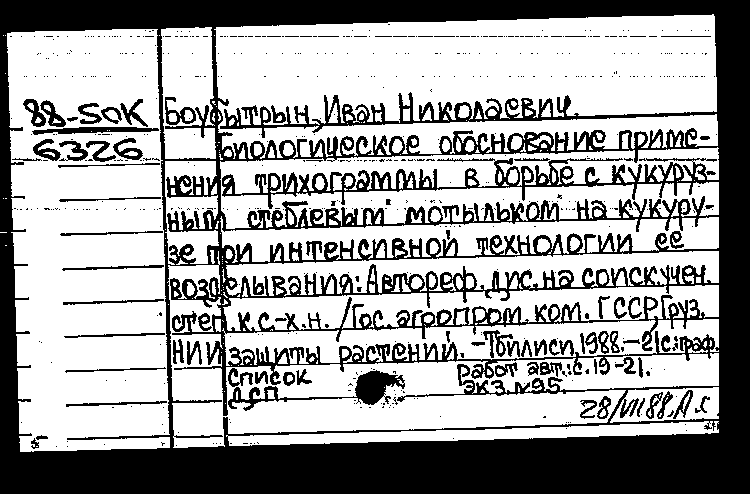 88-50К Боубытрын, Иван Николаевич.
6326 Биологическое обоснование приме-
нения трихограммы в борьбе с кукуруз-
ным стеблевым мотыльком на кукуру-
зе при интенсивной технологии ее
возделывания: Автореф. дис. на соиск. учен.
степ. к.с-х.н. / Гос. агропром. ком. ГССР, Груз.
НИИ защиты растений. - Тбилиси, 1988. - 21с: граф.
Список работ авт.: с. 19-21.
ДСП. Экз. №95.
28/VII 88.